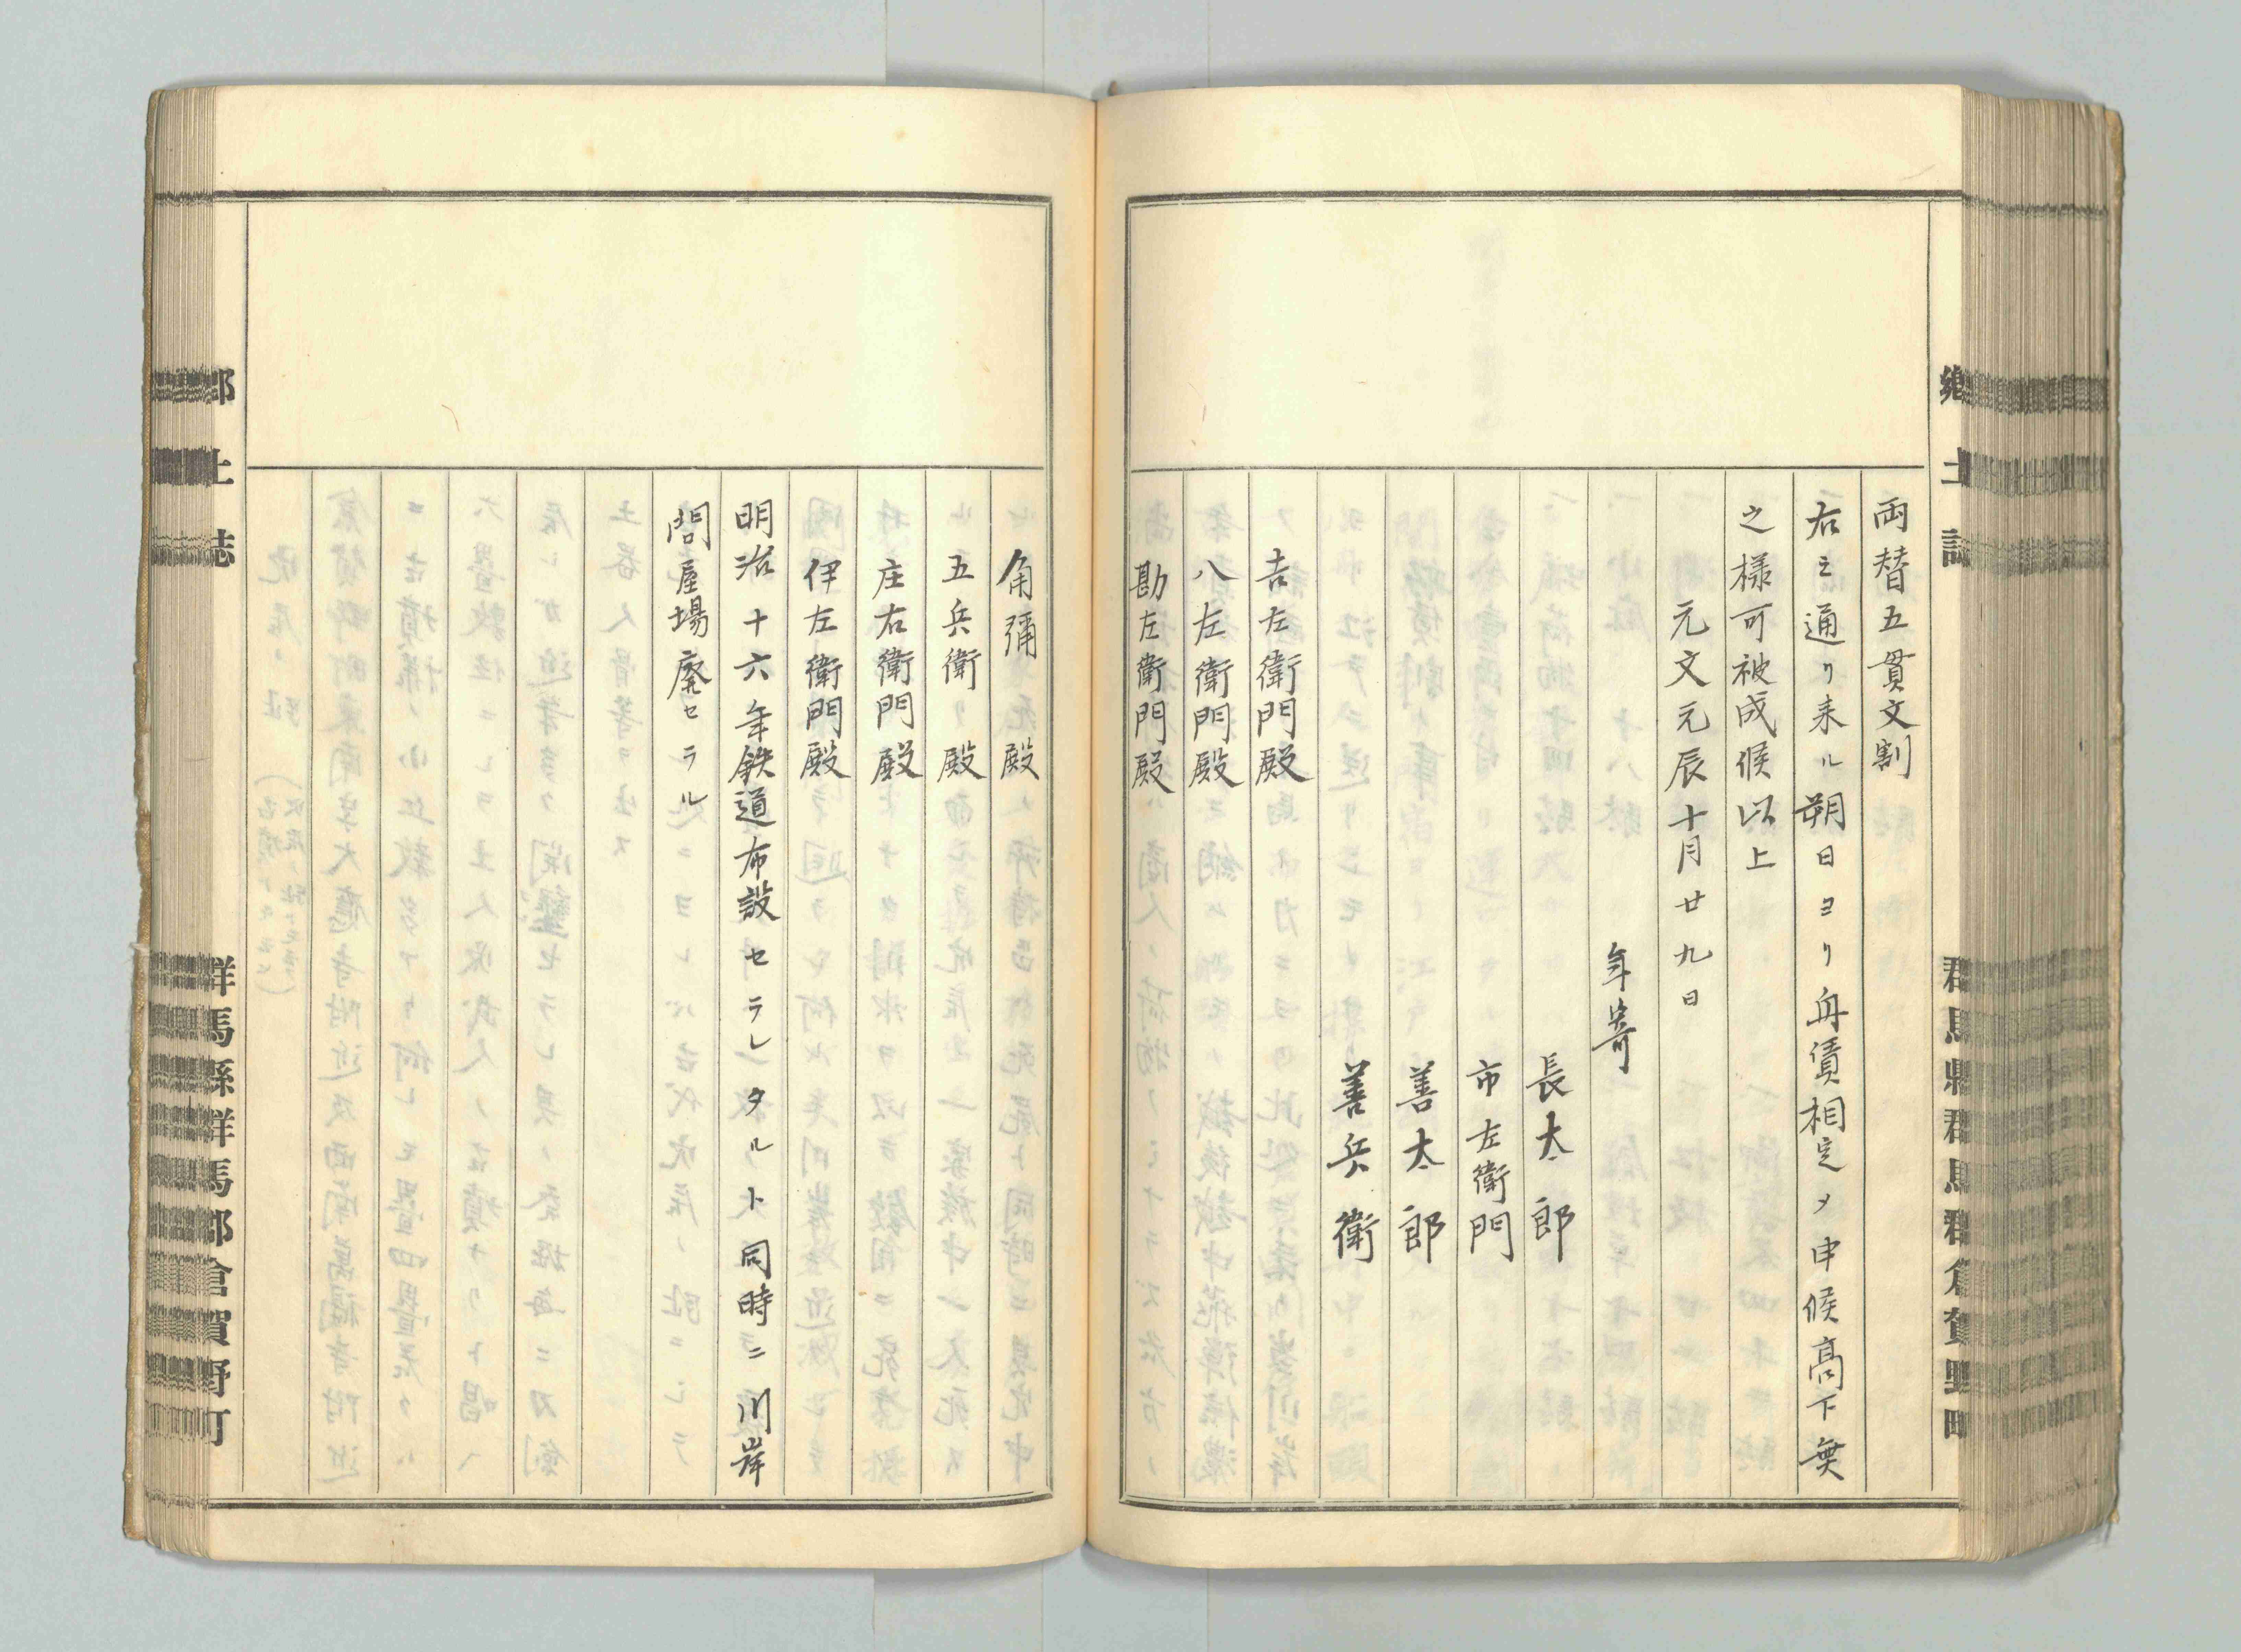 郷土誌
群馬縣群馬郡倉賀野町
両替五貫文割
右之通リ来ル朔日ヨリ舟賃相定メ申候高下無
之様可被成候以上
元文元辰十月廿九日
年寄
長太郎
市左衛門
善太郎
善兵衛
吉左衛門殿
八左衛門殿
勘左衛門殿
角彌殿
五兵衛殿
庄右衛門殿
伊左衛門殿
明治十六年鉄道布設セラレタルト同時ニ川岸
問屋場廃セラル
郷土誌
群馬縣群馬郡倉賀野町